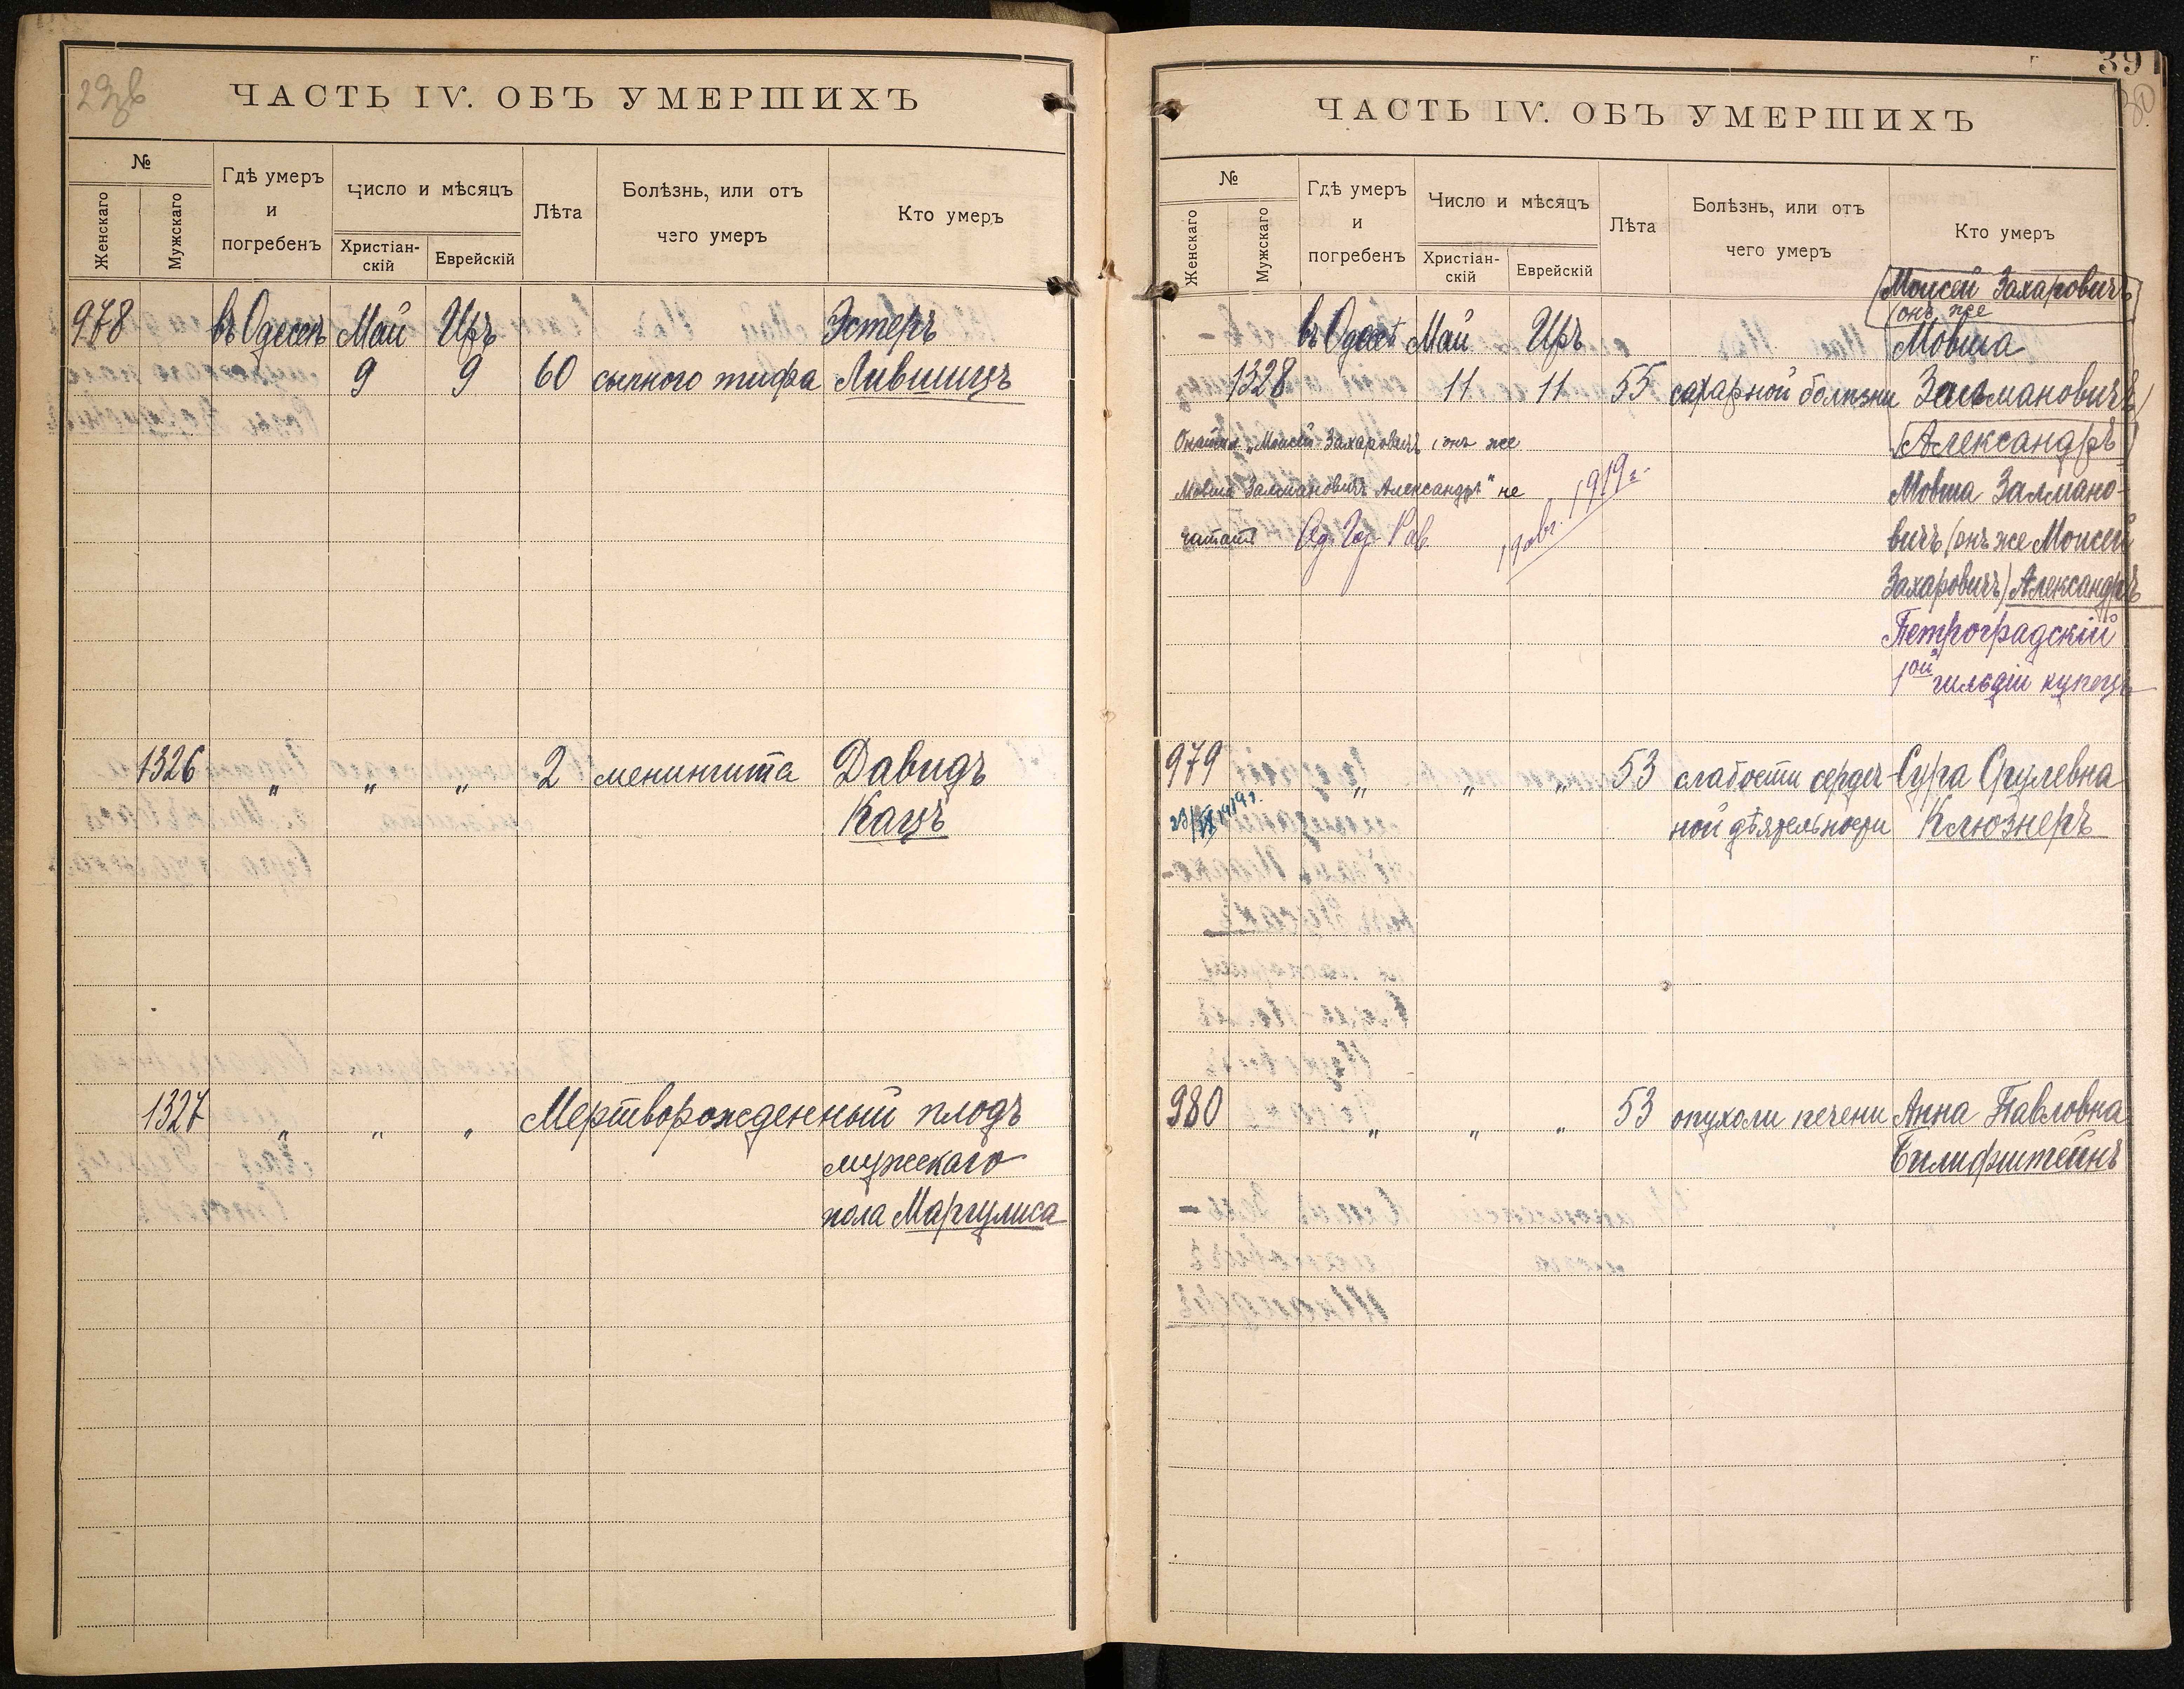 29 об
ЧАСТЬ IV. ОБЪ УМЕРШИХЪ
№
Женскаго
Мужскаго
Гдѣ умеръ
и
погребенъ
Число и мѣсяцъ
Христіан-
скій
Еврейскій
Лѣта
Болѣзнь, или отъ
чего умеръ
Кто умеръ
978 въ Одессѣ Май Іръ Эстеръ
9 9 60 сыпного тифа Лившицъ
1326 " " " 2 менингита Давидъ
Кацъ
1327 " " " Мертворожденный плодъ
мужскаго
пола Маргулиса
39
30
ЧАСТЬ IV. ОБЪ УМЕРШИХЪ
№
Женскаго
Мужскаго
Гдѣ умеръ
и
погребенъ
Число и мѣсяцъ
Христіан-
скій
Еврейскій
Лѣта
Болѣзнь, или отъ
чего умеръ
Кто умеръ
Моисей Захаровичъ
(онъ же
въ Одессѣ Май Іръ Мовша
1328 11 11 55 сахарной болѣзни Залмановичъ)
Александръ
"Моисей Захаровичъ (онъ же
Мовша Залмановичъ Александръ" не
читать Од. Гор. Рав.
1919 г.
Мовша Залмано-
вичъ (онъ же Моисей
Захаровичъ) Александръ
Петроградскій
1ой гильдіи купецъ
979 " " " 53 слабости сердеч- Сура Срулевна
23/IX 1919 г.
ной дѣятельности Клюзнеръ
980 " " " 53 опухоли печени Анна Павловна
Билифштейнъ